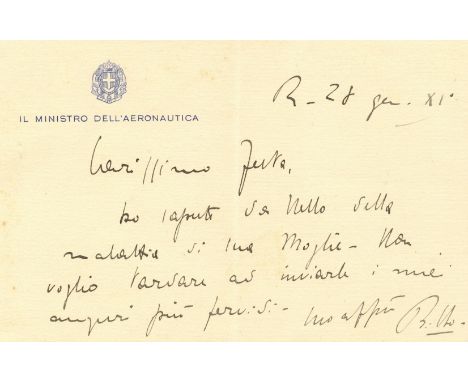 R - 28 gen. XI°
IL MINISTRO DELL'AERONAUTICA
Carissimo Testa,
ho saputo da Nello della
malattia di sua Moglie - Non
voglio tardare ad inviarle i miei
auguri più fervidi -
suo aff.